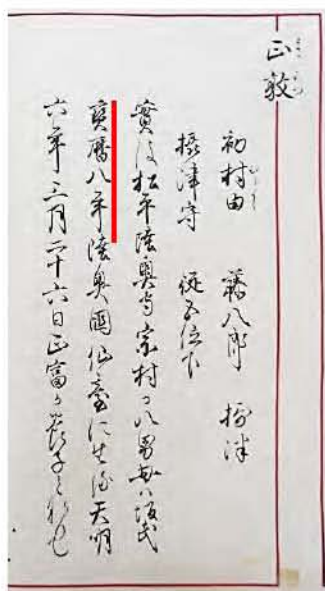 正敦
初村由 藤八郎 摂津
摂津守 従五位下
實は松平陸奥守宗村の八男母ハ坂氏
寳暦八年陸奥國仙臺に生る天明
六年三月二十六日正富の養子と